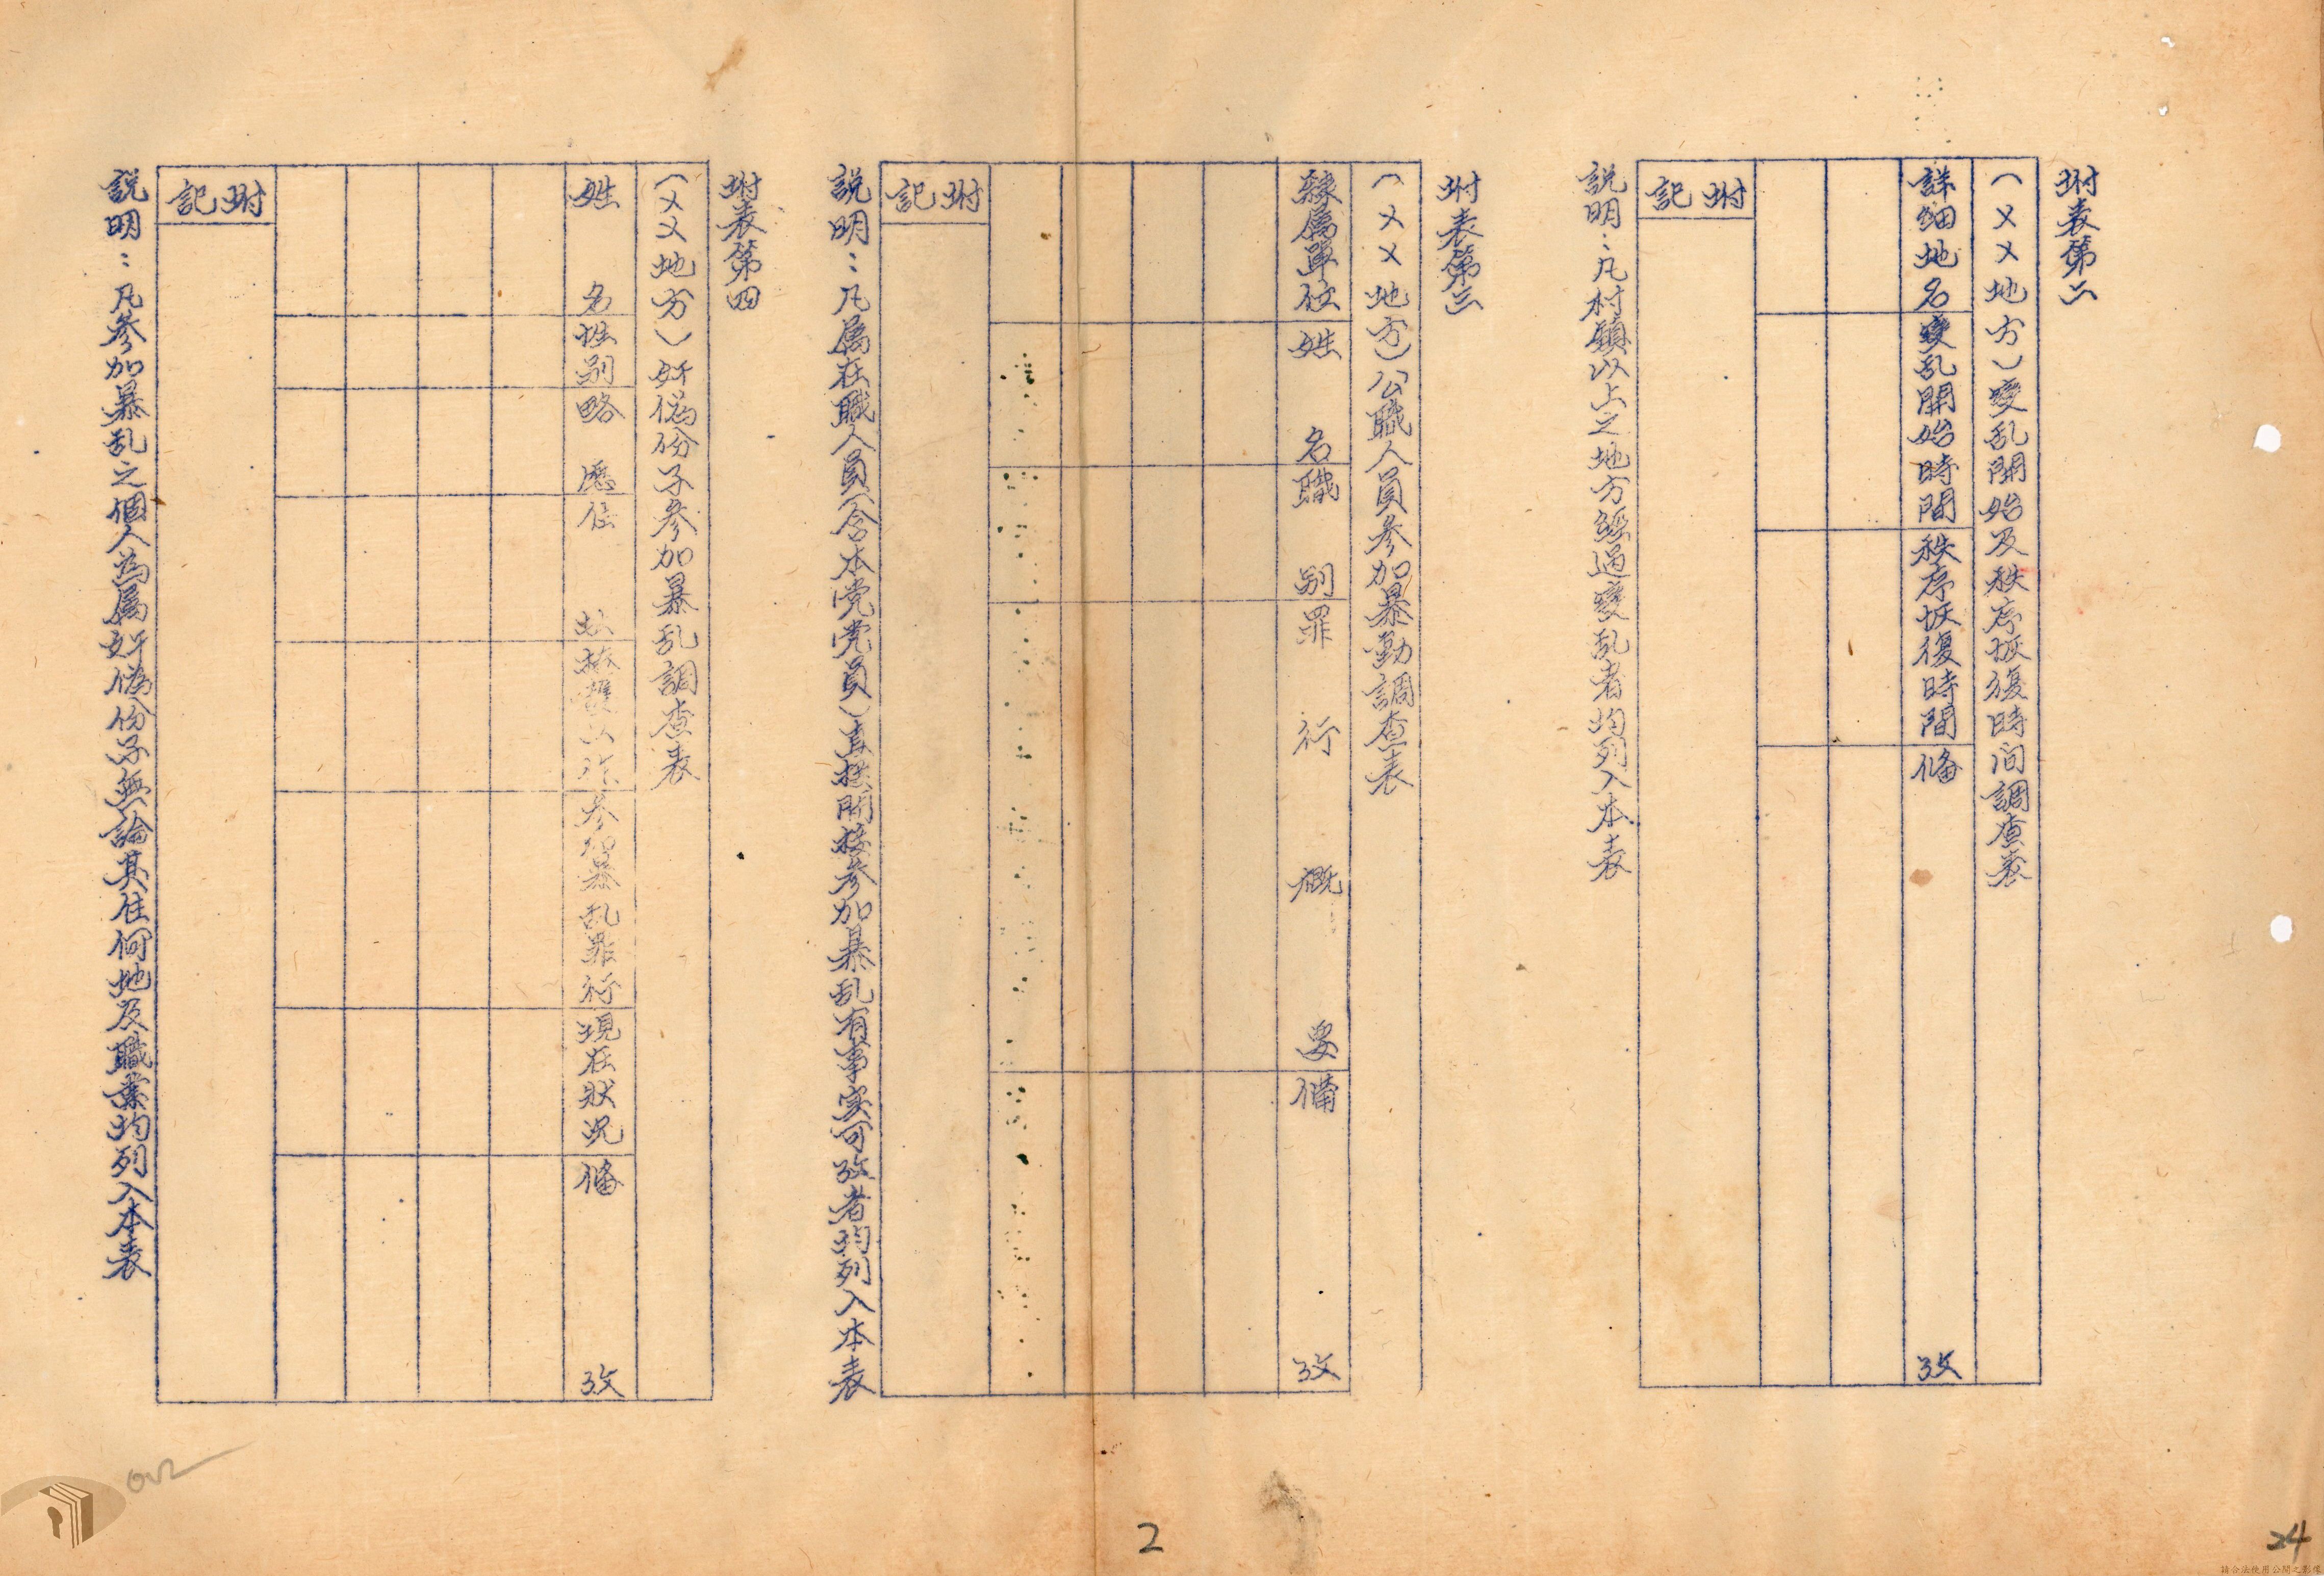 坿表第二
(××地方)變乱開始及秩序恢復時间調查表
詳細地名 變乱開始時間 秩序恢復時間 備 攷
坿記
説明：凡村鎮以上之地方經過變乱者均列入本表
坿表第三
(××地方)公職人員參加暴動調查表
隸属單位 姓 名 職 别 罪 行 概 要 備 攷
坿記
説明：凡属在職人員(含本党党員)直接間接參加暴乱有事实可攷者均列入本表
坿表第四
(××地方)奸偽份子參加暴乱調查表
姓 名 性别 略 歷 住 址 參加暴乱罪行 現在狀况 備 攷
坿記
説明：凡參加暴乱之個人為属奸偽份子無論其住何地及職業均列入本表
2
24
請合法使用公開之影像